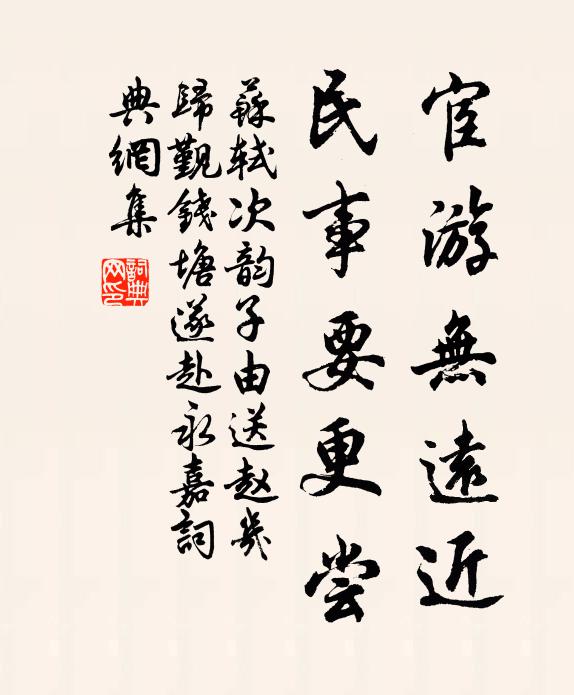 宦游無遠近
民事要更尝
蘇軾次韵子由送赵㞦
歸觐錢塘遂赴永嘉詞
典網集
詞典
网印